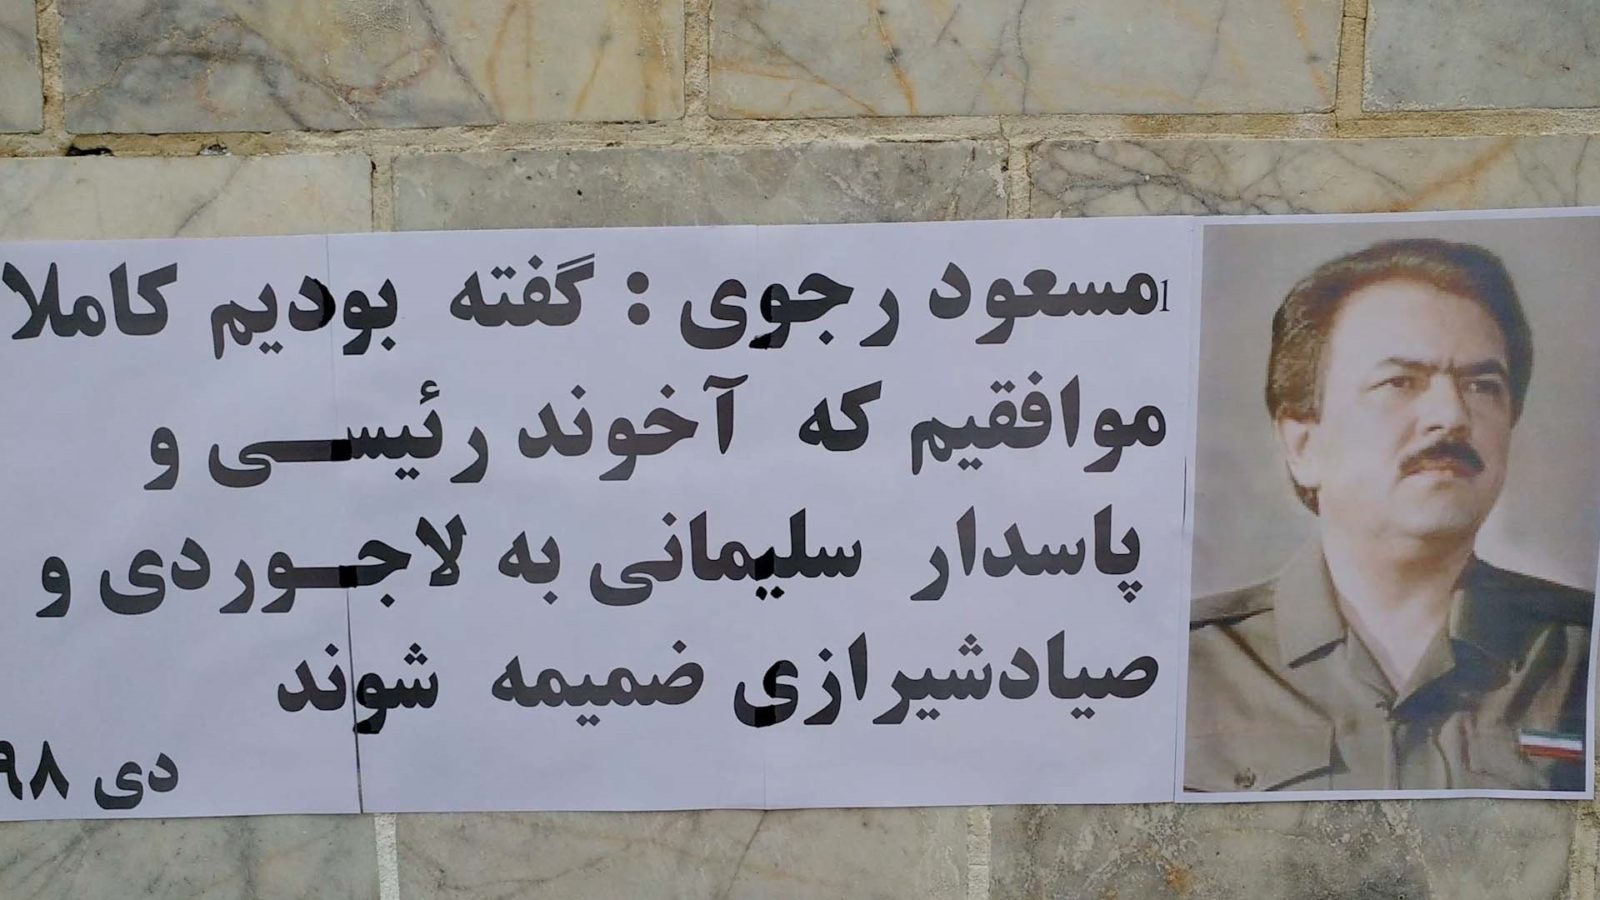 مسعود رجوی : گفته بودیم کاملا
موافقیم که آخوند رئیسی و
پاسدار سلیمانی به لاجوردی و
صیادشیرازی ضمیمه شوند
دی ۹۸